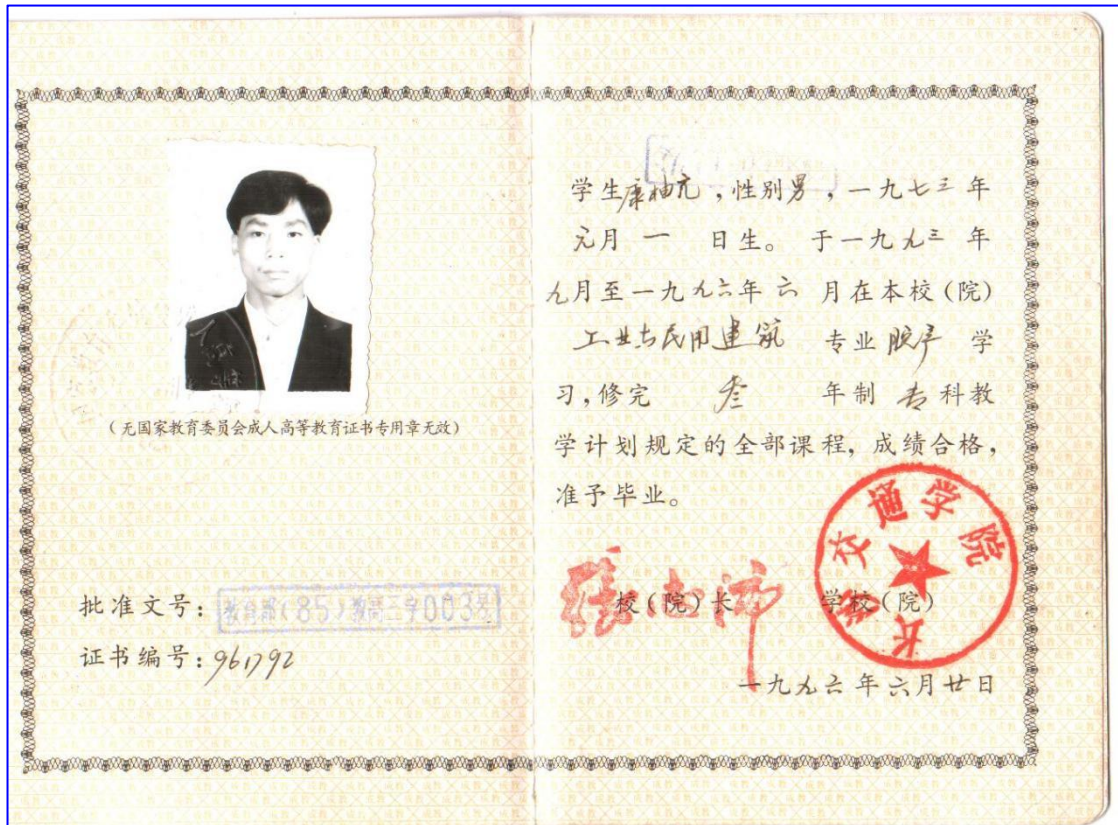 (无国家教育委员会成人高等教育证书专用章无效)
批准文号: 教育部(85)教高三字003号
证书编号: 961792
学生康柚亢,性别男,一九七三年
元月 一 日生。于一九九三 年
九月至一九九六年 六 月在本校(院)
工业与民用建筑 专业 脱产 学
习,修完 叁 年制 专 科教
学计划规定的全部课程,成绩合格,
准予毕业。
校(院)长 学校(院)
长沙交通学院
一九九六年六月廿日